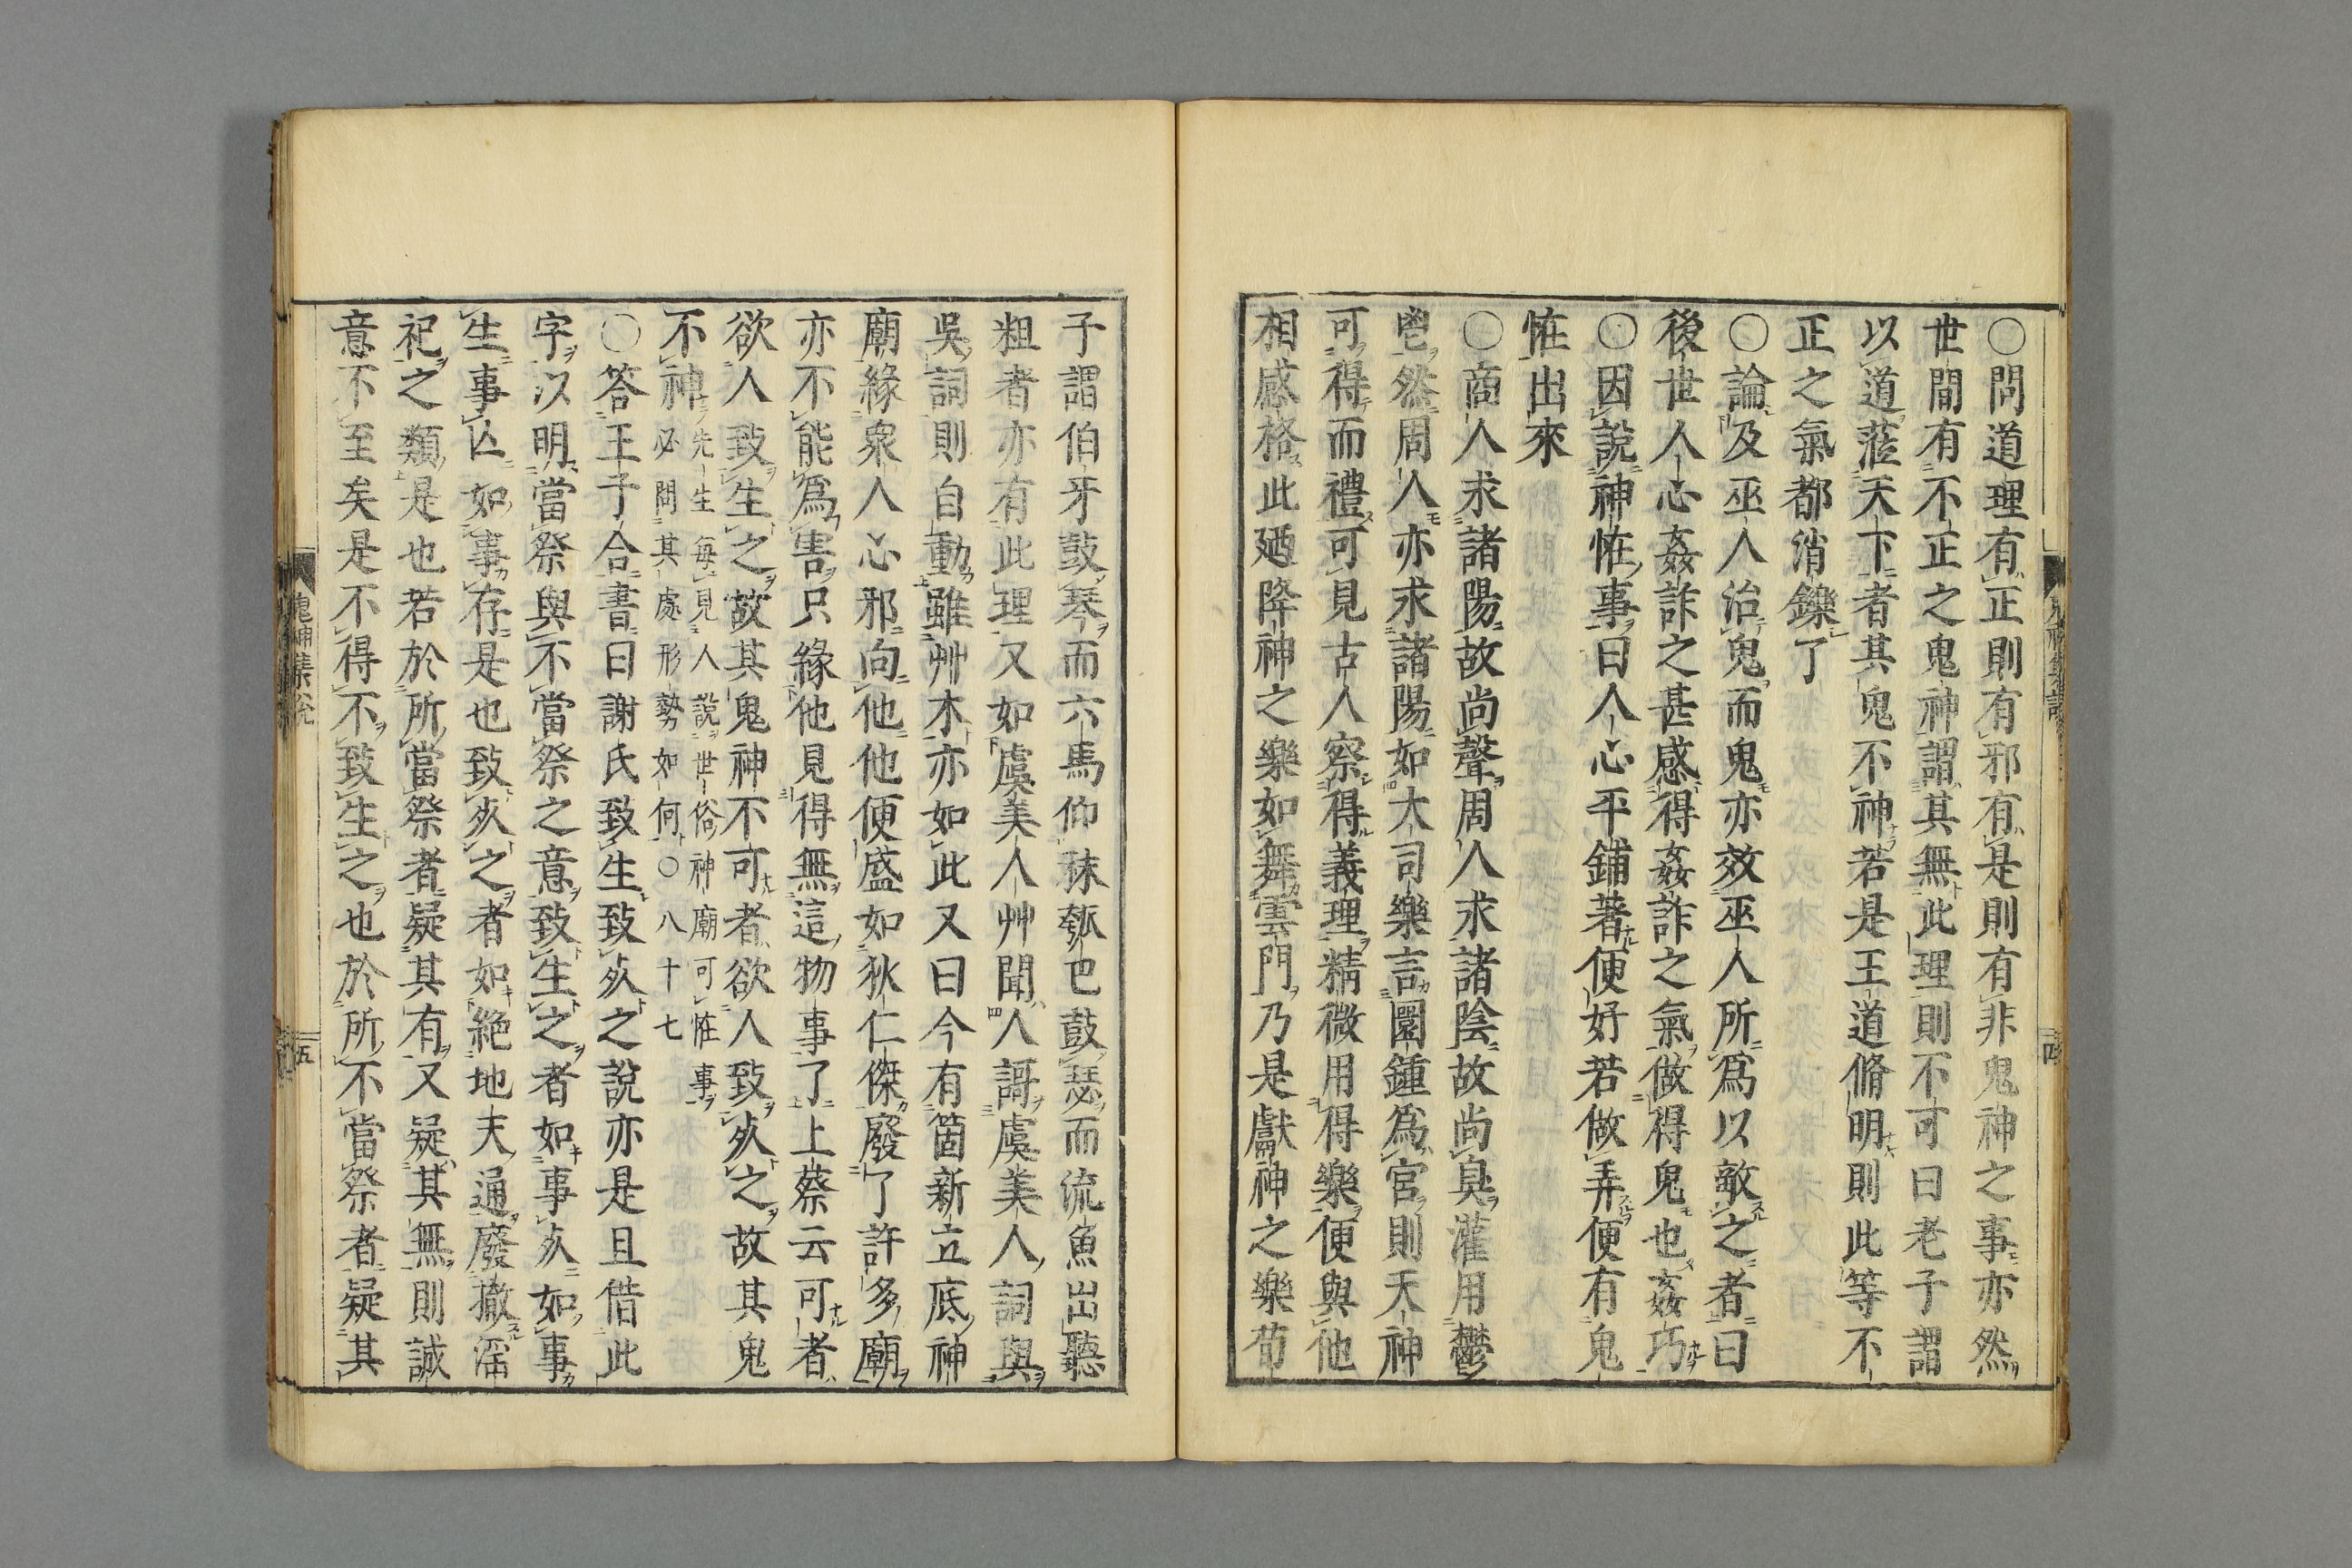 〇問道理有正則有邪有是則有非鬼神之事亦然
世間有不正之鬼神謂其無此理則不可曰老子謂
以道蒞天下者其鬼不神若是王道脩明則此等不
正之氣都消鑠了
〇論及巫人治鬼而鬼亦效巫人所爲以敵之者曰
後世人心姦詐之甚感得姦詐之氣做得鬼也姦巧
〇因說神恠事曰人心平鋪著便好若做弄便有鬼
恠出來
〇商人求諸陽故尚聲周人求諸陰故尚臭灌用鬱
鬯然周人亦求諸陽如大司樂言圜鍾爲宮則天神
可得而禮可見古人察得義理精微用得樂便與他
相感格此廼降神之樂如舞雲門乃是獻神之樂荀
子謂伯牙鼓琴而六馬仰秣瓠巴鼓瑟而流魚出聽
粗者亦有此理又如虞美人艸聞人謌虞美人詞與
吳詞則自動雖艸木亦如此又曰今有箇新立底神
廟緣衆人心邪向他他便盛如狄仁傑廢了許多廟
亦不能爲害只緣他見得無這物事了上蔡云可者
欲人致生之故其鬼神不可者欲人致死之故其鬼
不神先生每見人說世俗神廟可恠事
必問其處形勢如何〇八十七
〇答王子合書曰謝氏致生致死之說亦是且借此
字以明當祭與不當祭之意致生之者如事死如事
生事亾如事存是也致死之者如絕地天通廢撤淫
祀之類是也若於所當祭者疑其有又疑其無則誠
意不至矣是不得不致生之也於所不當祭者疑其
鬼神集說
五